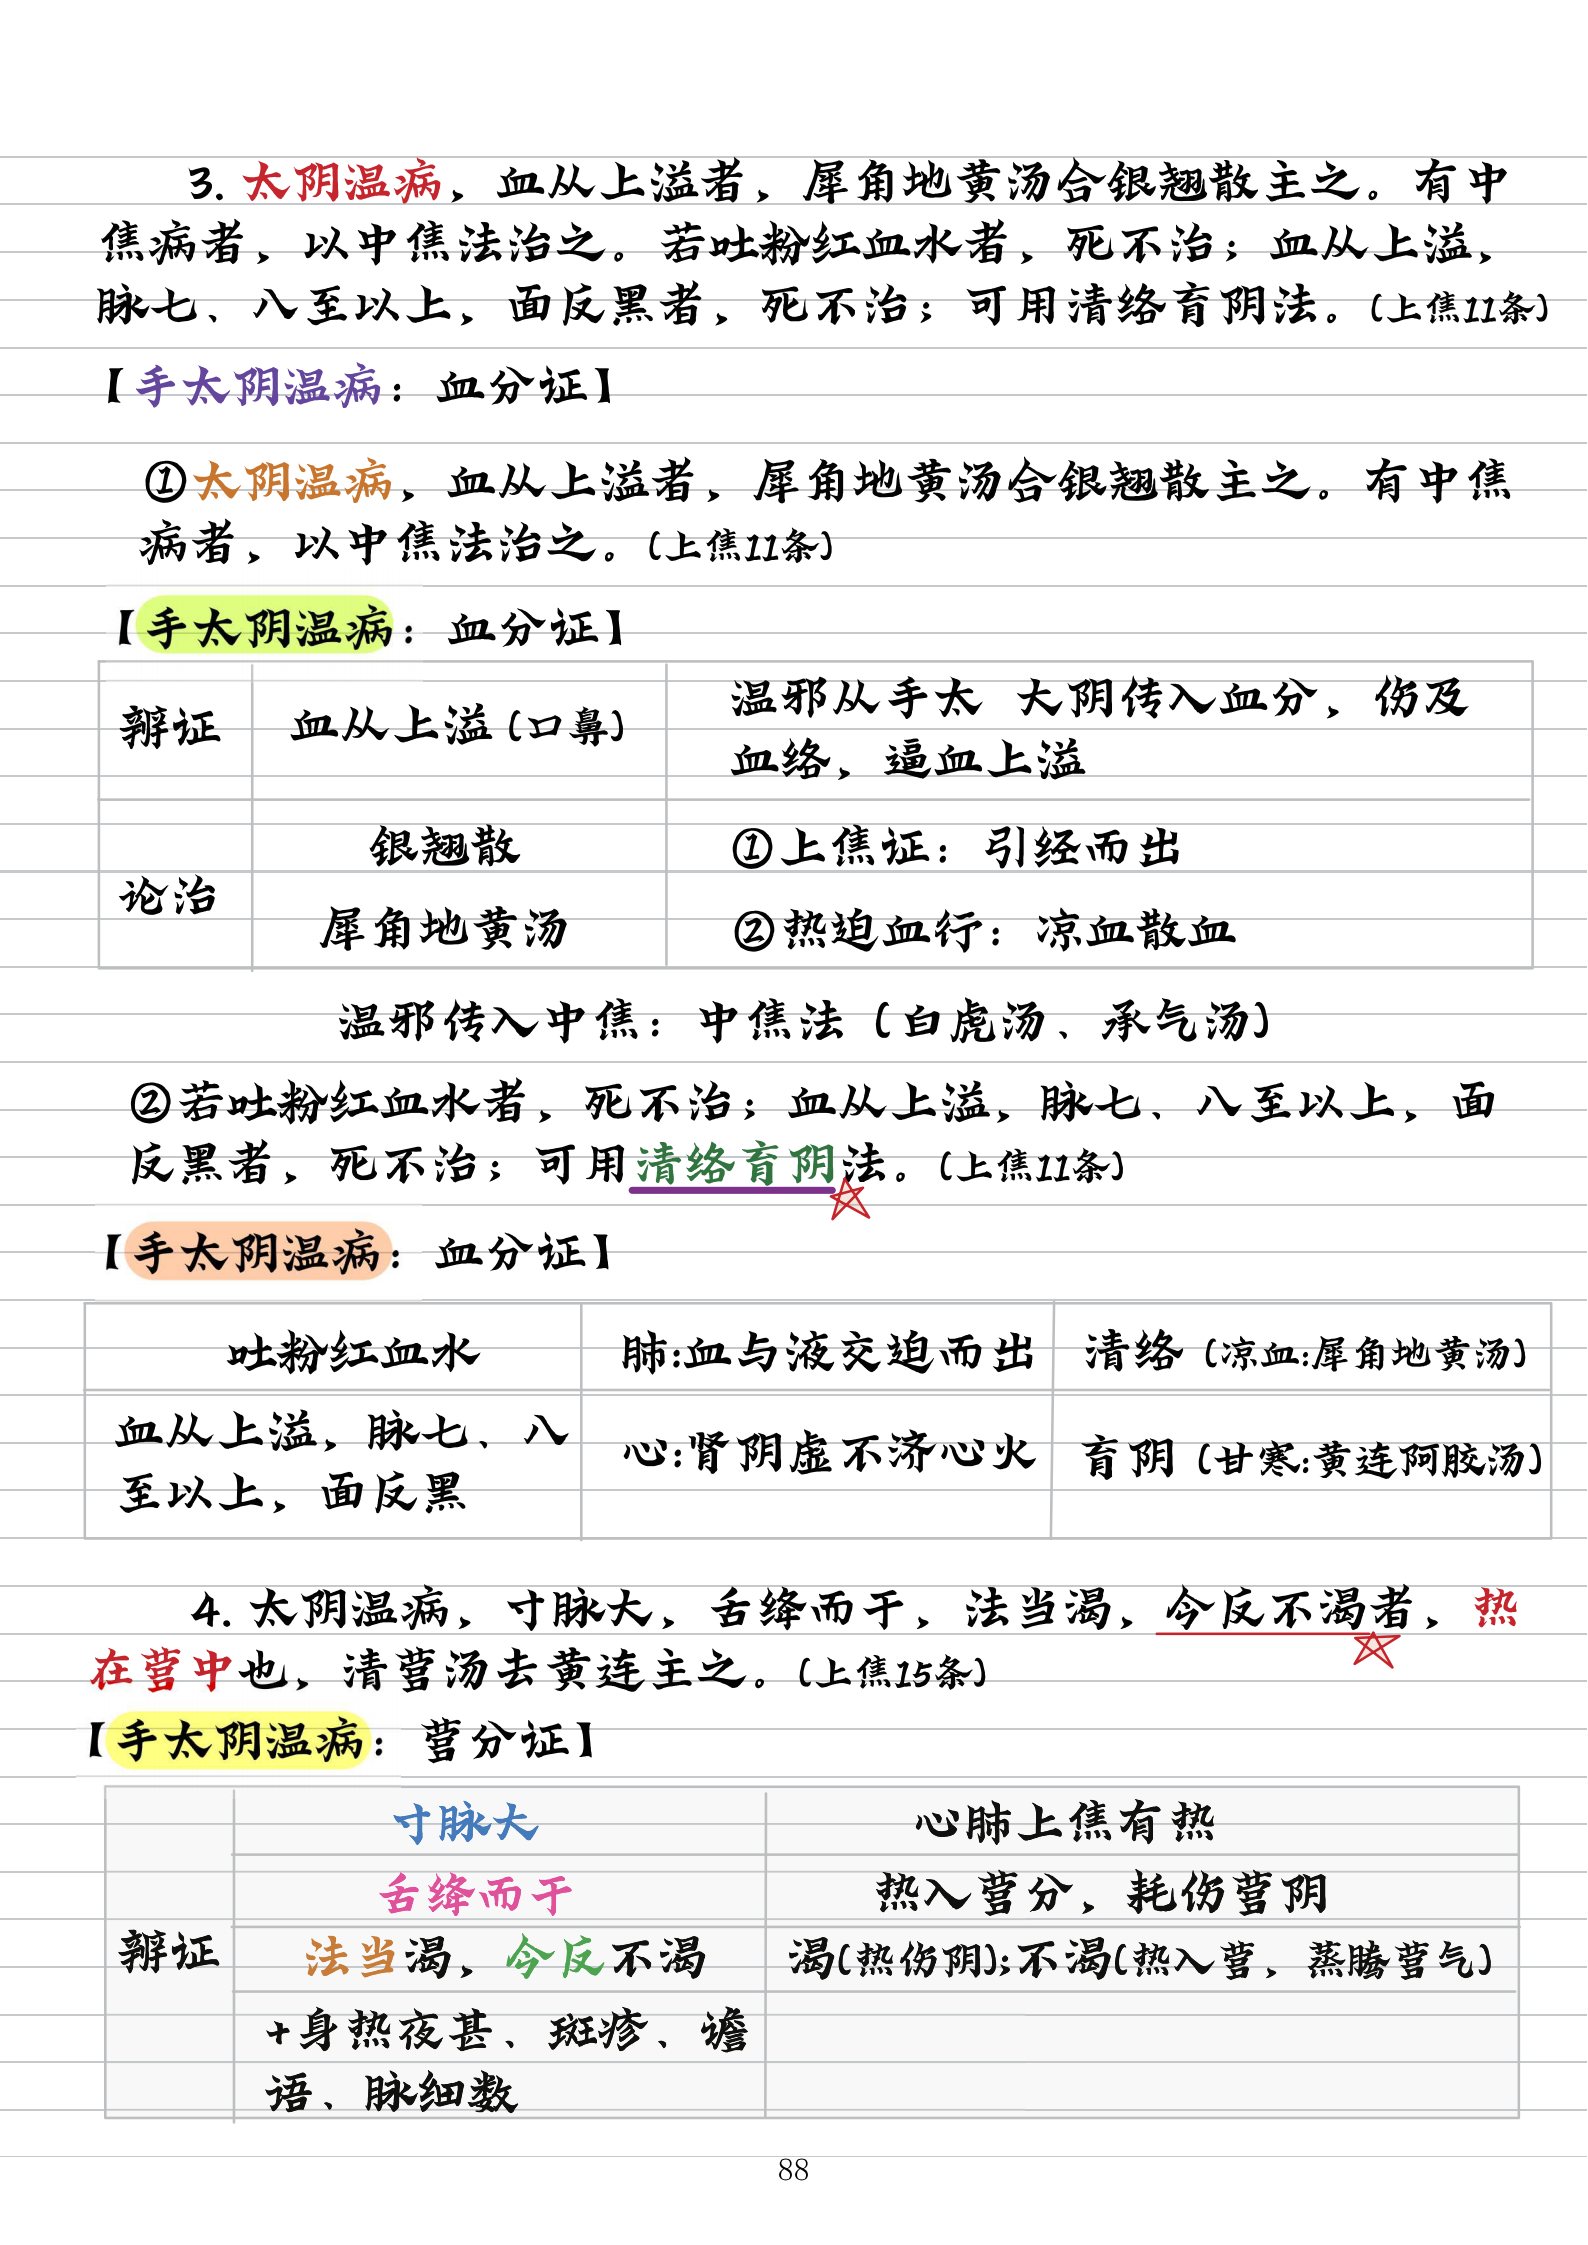 3. 太阴温病，血从上溢者，犀角地黄汤合银翘散主之。有中
焦病者，以中焦法治之。若吐粉红血水者，死不治；血从上溢，
脉七、八至以上，面反黑者，死不治；可用清络育阴法。(上焦11条)
【手太阴温病：血分证】
①太阴温病，血从上溢者，犀角地黄汤合银翘散主之。有中焦
病者，以中焦法治之。(上焦11条)
【手太阴温病：血分证】
辨证
血从上溢(口鼻)
温邪从手太 大阴传入血分，伤及
血络，逼血上溢
论治
银翘散
①上焦证：引经而出
犀角地黄汤
②热迫血行：凉血散血
温邪传入中焦：中焦法(白虎汤、承气汤)
②若吐粉红血水者，死不治；血从上溢，脉七、八至以上，面
反黑者，死不治；可用清络育阴法。(上焦11条)
【手太阴温病：血分证】
吐粉红血水
肺:血与液交迫而出
清络(凉血:犀角地黄汤)
血从上溢，脉七、八
至以上，面反黑
心:肾阴虚不济心火
育阴(甘寒:黄连阿胶汤)
4. 太阴温病，寸脉大，舌绛而干，法当渴，今反不渴者，热
在营中也，清营汤去黄连主之。(上焦15条)
【手太阴温病：营分证】
辨证
寸脉大
心肺上焦有热
舌绛而干
热入营分，耗伤营阴
法当渴，今反不渴
渴(热伤阴);不渴(热入营，蒸腾营气)
+身热夜甚、斑疹、谵
语、脉细数
88